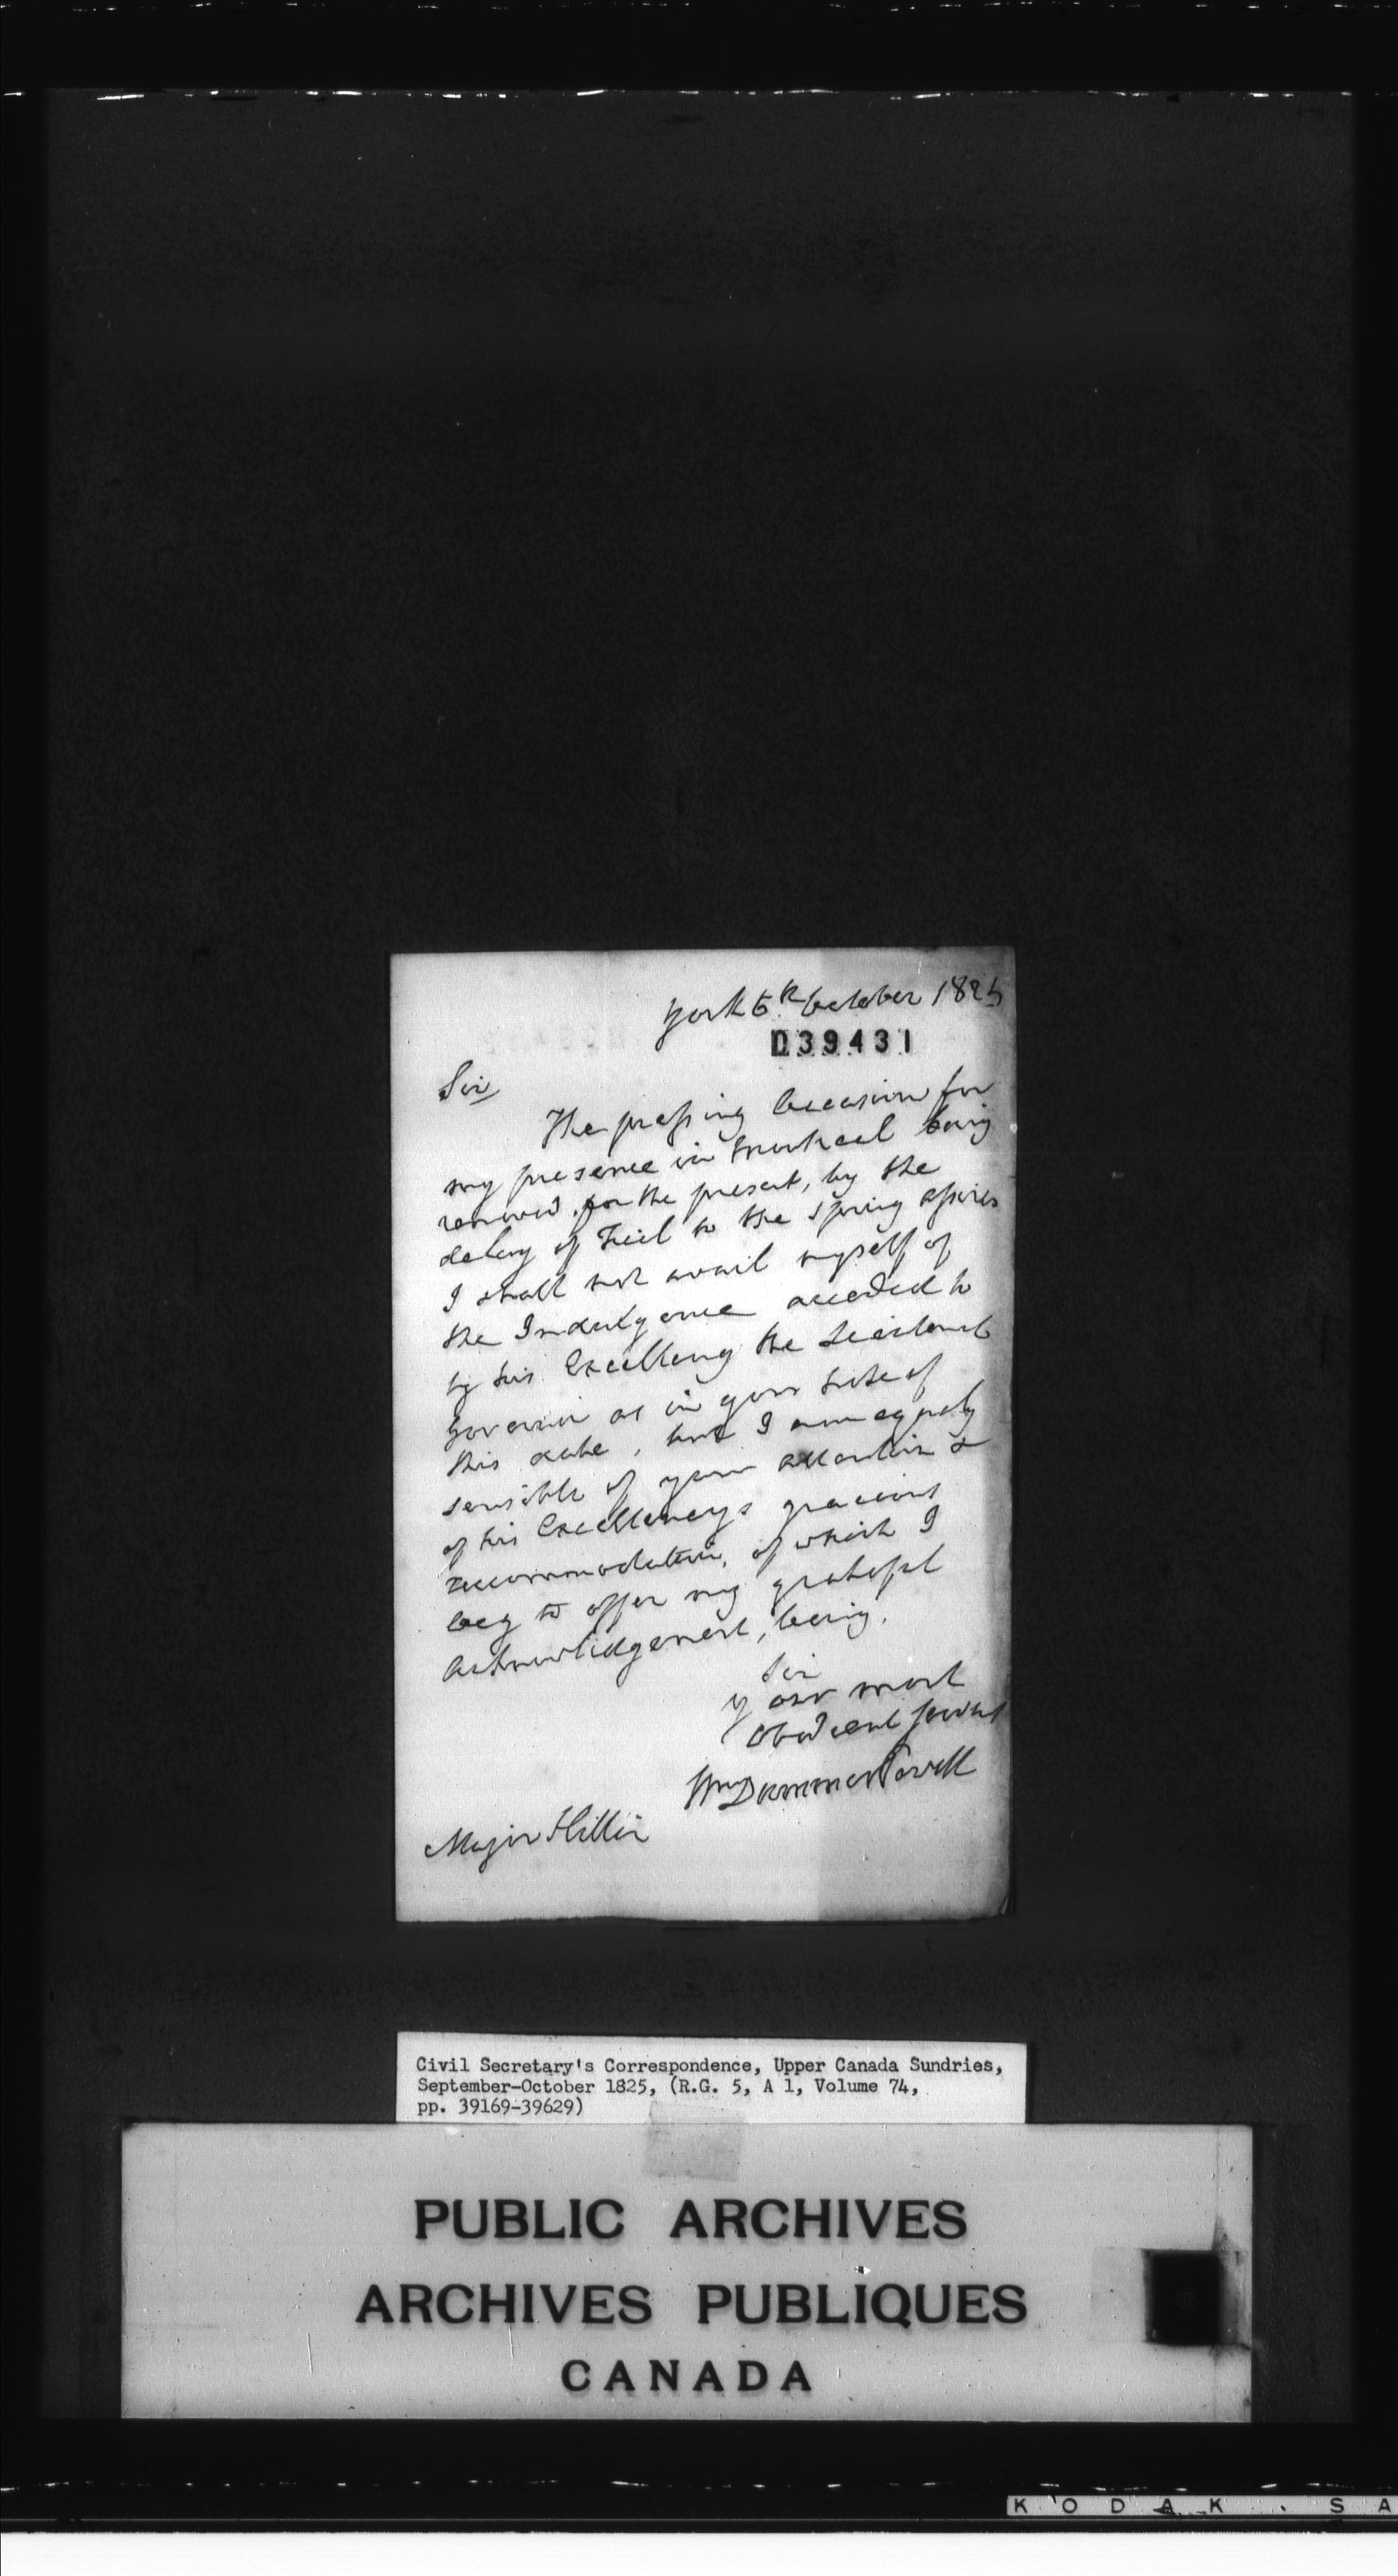 York 5th October 1825
039431
Sir
The pressing Occasion for
my presence in Montreal being
removed, for the present, by the
delay of Trial to the Spring assizes
I shall not avail myself of
the Indulgence acceded to
by his Excellency the Lieutenant
Governor as in your Note of
this date, but I am equally
sensible of your attention &
of his Excellencys gracious
accommodation, of which I
beg to offer my grateful
acknowledgement, being,
Sir
your most
Obedient servant
Wm Dummer Powell
Major Hillier
Civil Secretary's Correspondence, Upper Canada Sundries,
September-October 1825, (R.G. 5, A 1, Volume 74,
pp. 39169-39629)
PUBLIC ARCHIVES
ARCHIVES PUBLIQUES
CANADA
KODAK . SA